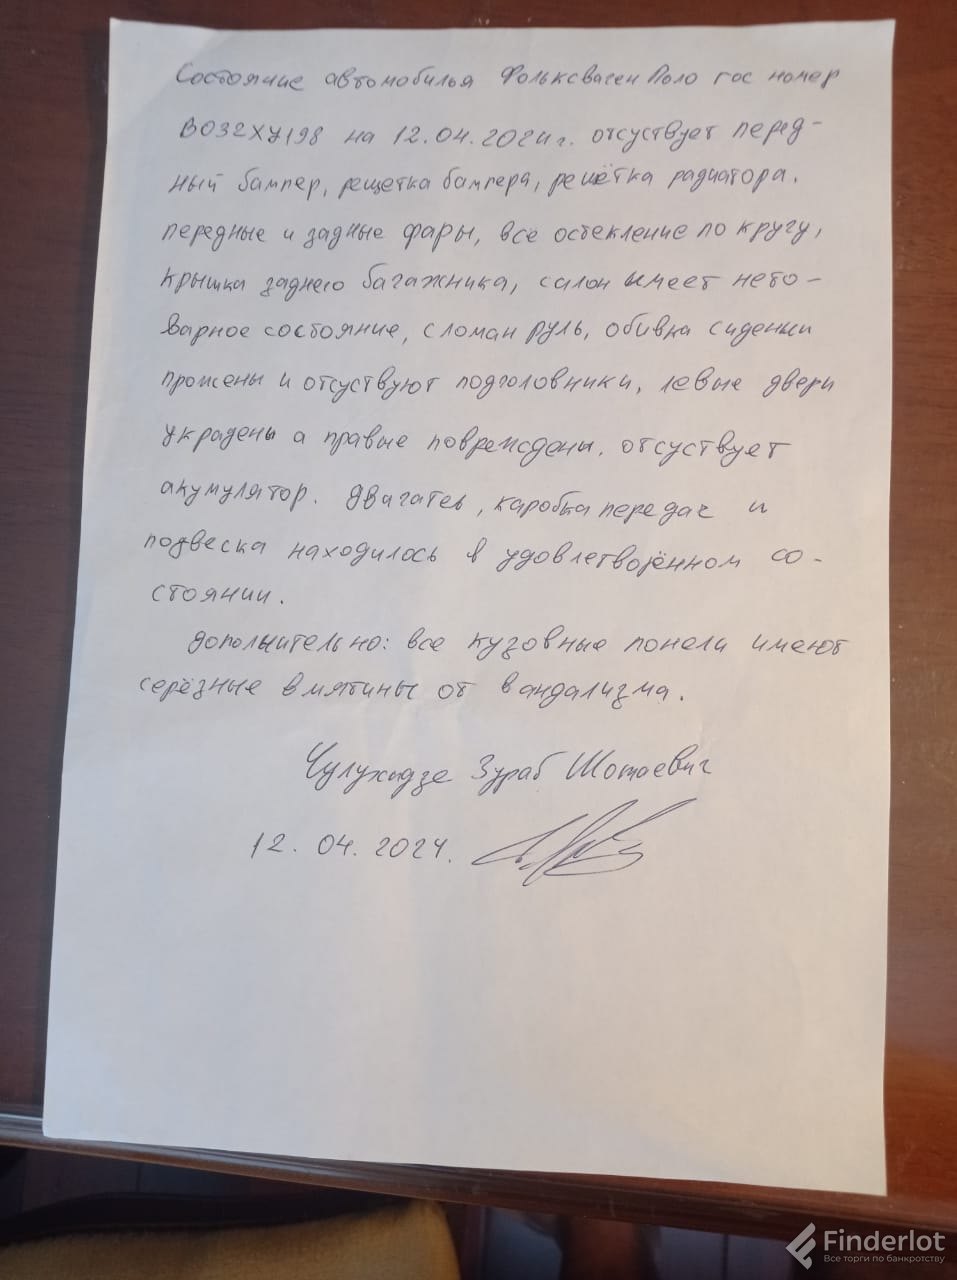 Состояние автомобилья Фольксваген Поло гос номер
ВО32ХУ198 на 12.04.2024г. отсуствует перед-
ный бампер, рещетка бампера, решётка радиатора.
передные и задные фары, все остекление по кругу,
крышка заднего багажника, салон имеет нето-
варное состояние, сломан руль, обивка сидении
прожены и отсуствуют подголовники, левые двери
украдены а правые повреждены. отсуствует
акумулятор. двагатев, каробка передач и
подвеска находилось в удовлетворённом со-
стоянии.
дополнительно: все кузовные понели имеют
серёзные вмятины от вандализма.
Чулухадзе Зураб Шотаевич
12.04.2024.
Finderlot
Все торги по банкротству